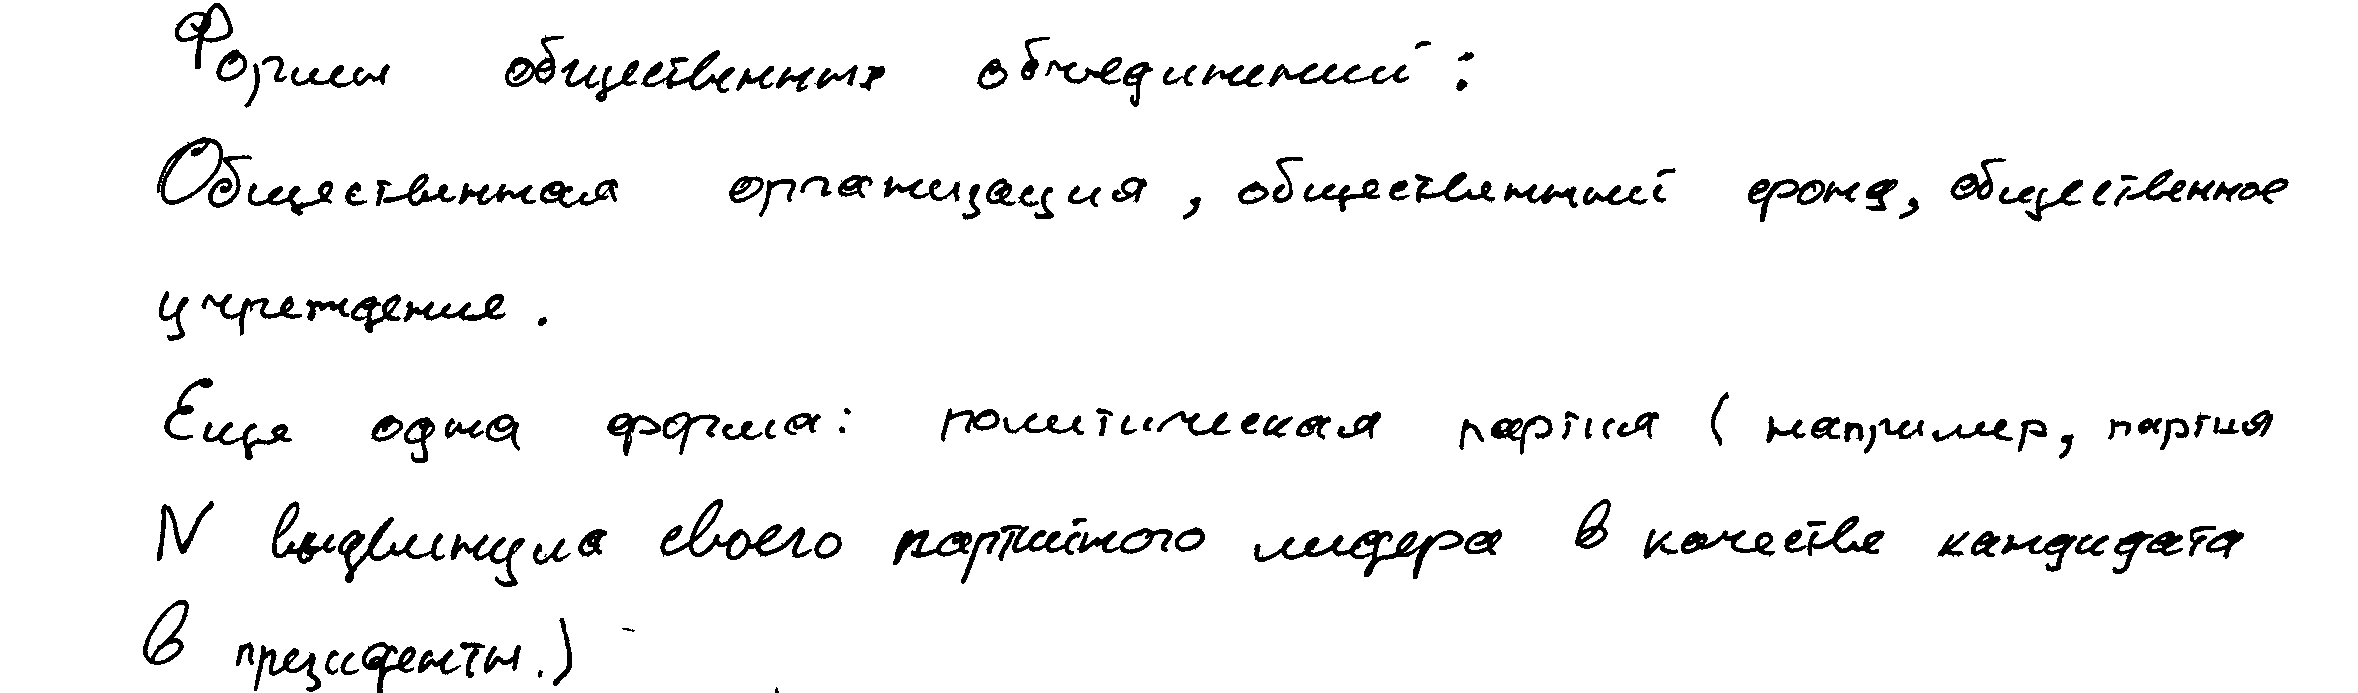 Формы общественных объединений:
Общественная организация, общественный фонд, общественное
учреждение.
Еще одна форма: политическая партия (например, партия
N выдвинула своего партийного лидера в качестве кандидата
в президенты.)